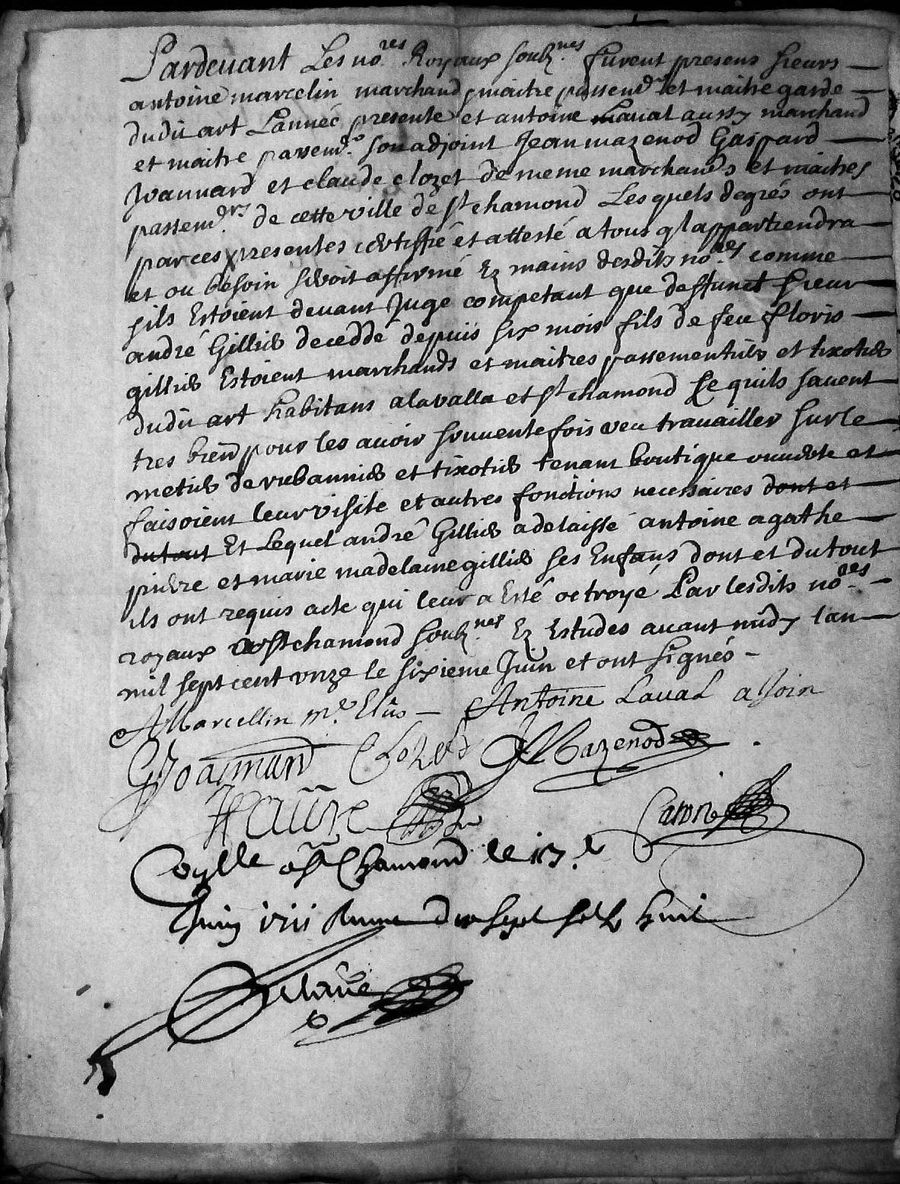 Pardevant Les no.res Royaux soubz.nes furent presens sieurs
antoine marcelin marchand maitre passem.r et maitre garde
dudit art Lannée presente et antoine Laval aussy marchand
et maitre passem.r son adjoint Jean mazenod Gaspard
et claude clozet de meme marchands et maitres
passem.rs de cette ville de st chamond Lesquels degrés ont
par ces presentes certiffié et attesté a tous ql appartiendra
et ou besoin seroit affirmé Ez mains desdits no.res comme
sils Estoient devant Juge competant que deffunct sieur
andré Gillier deceddé depuis six mois fils de feu floris
gillier Estoient marchands et maitres passementiers et tixotiers
dudit art habitans a lavalla et st chamond ce quils savent
tres bien pour les avoir souventefois veu travailler sur le
metier de rubannier et tixotier tenant boutique ouverte et
faisoient leur visite et autres fonctions necessaires dont et
du tout Et Lequel andré Gillier a delaissé antoine agathe
pierre et marie madelaine gillier ses Enfans dont et du tout
ils ont requis acte qui leur a Esté octroyé Par lesdits no.res
royaux a st chamond soubz.nes Ez Estudes avant midy lan
mil sept cent unze le sixieme Juin et ont signés
AMarcellin m.e Antoine Laval aJoin
JMazenod
st Chamond le 13.e
Juin 1711